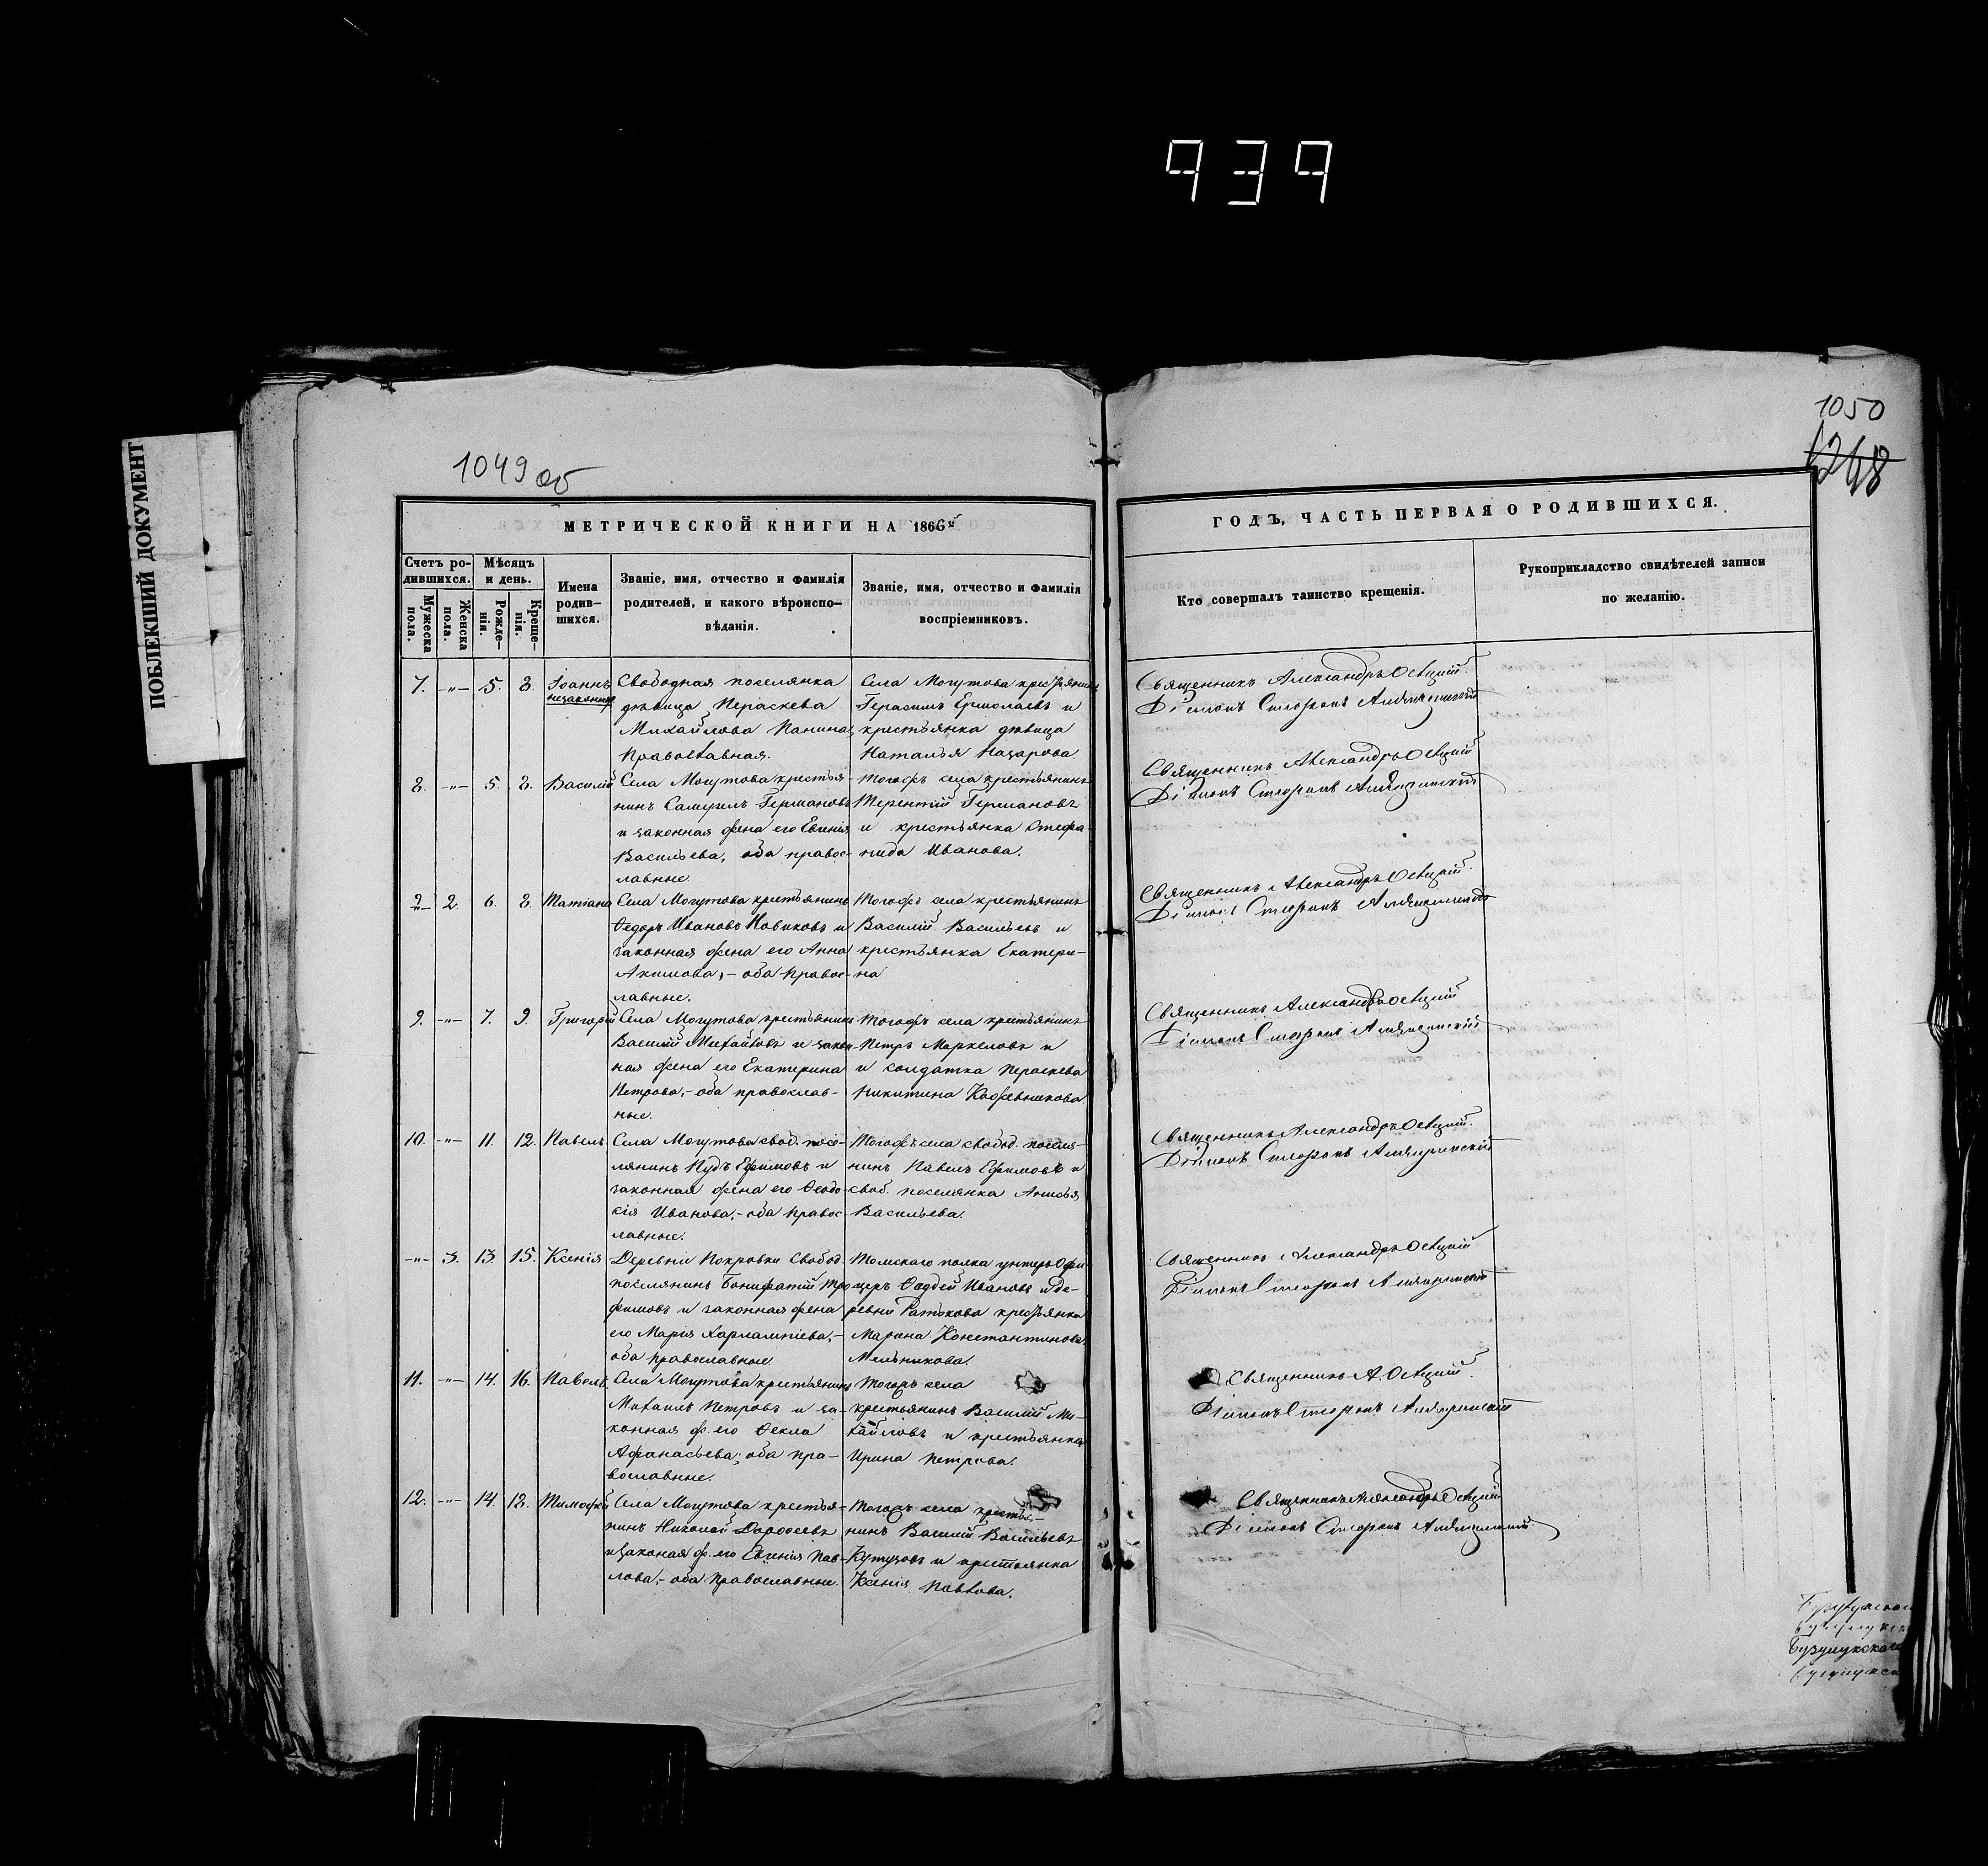 939
ПОБЛЕКШИЙ ДОКУМЕНТ
1049 об
1050
МЕТРИЧЕСКОЙ КНИГИ НА 1866й
Счетъ ро-
дившихся.
Мужеска
пола.
Женска
пола.
Мѣсяцъ
и день.
Рожде-
нія.
Креще-
нія.
Имена
родив-
шихся.
Званіе, имя, отчество и фамилія
родителей, и какого вѣроиспо-
вѣданія.
Званіе, имя, отчество и фамилія
воспріемниковъ.
7. -"- 5. 8. Іоаннъ
незаконнор
Свободная поселянка
дѣвица Пераскева
Михайлова Панина,
православная.
Села Могутова крестьянинъ
Герасимъ Ермолаевъ и
крестьянка дѣвица
Наталья Назарова
8. -"- 5. 8. Василій
Села Могутова крестья-
нинъ Самуилъ Германовъ
и законная жена его Евгенія
Васильева, оба правос-
лавные.
Тогожъ села крестьянинъ
Терентій Германовъ
и крестьянка Стефа-
нида Иванова.
-"- 2. 6. 8. Татіана
Села Могутова крестьянинъ
Ѳедоръ Ивановъ Новиковъ и
законная жена его Анна
Акимова, - оба правос-
лавные.
Тогожъ села крестьянинъ
Василій Васильевъ и
крестьянка Екатери-
на
9. -"- 7. 9. Григорій
Села Могутова крестьянинъ
Василій Михайловъ и закон-
ная жена его Екатерина
Петрова, - оба православ-
ные.
Тогожъ села крестьянинъ
Петръ Маркеловъ и
и солдатка Пераскева
Никитина Кожевникова
10. -"- 11. 12. Павелъ
Села Могутова своб. посе-
лянинъ Пудъ Ефимовъ и
законная жена его Ѳеодо-
сія Иванова, - оба правос-
лавные.
Тогожъ села свобод. поселя-
нинъ Павелъ Ефимовъ и
своб. поселянка Анисья
Васильева.
-"- 3. 13. 15. Ксенія
Деревни Покровки Свобод.
поселянинъ Бонифатій Тро-
фимовъ и законная жена
его Марія Харлампіева, -
оба православные
Томскаго полка унтеръ Офи-
церъ Фаддей Ивановъ и Де-
ревни Ратькова крестьянка
Марина Константинова
Мельникова.
11. -"- 14. 16. Павелъ
Села Могутова крестьянинъ
Михаилъ Петровъ и за-
конная ж. его Ѳекла
Афанасьева; оба пра-
вославные.
Тогожъ села
крестьянинъ Василій Ми-
хайловъ и крестьянка
Ирина Петрова.
12. -"- 14. 18. Тимофей
Села Могутова крестья-
нинъ Николай Дорофеевъ
и законая ж. его Евгенія Пав-
лова, - оба православные.
Тогожъ села крестья-
нинъ Василій Васильевъ
Кутузовъ и крестьянка
Ксенія Павлова.
ГОДЪ, ЧАСТЬ ПЕРВАЯ О РОДИВШИХСЯ.
Кто совершалъ таинство крещенія.
Рукоприкладство свидѣтелей записи
по желанію.
Священникъ Александръ
Священникъ Александръ
Священникъ Александръ
Священникъ Александръ
Священникъ Александръ
Священникъ Александръ
Священникъ А.
Священникъ Александръ
Бузулукскаго